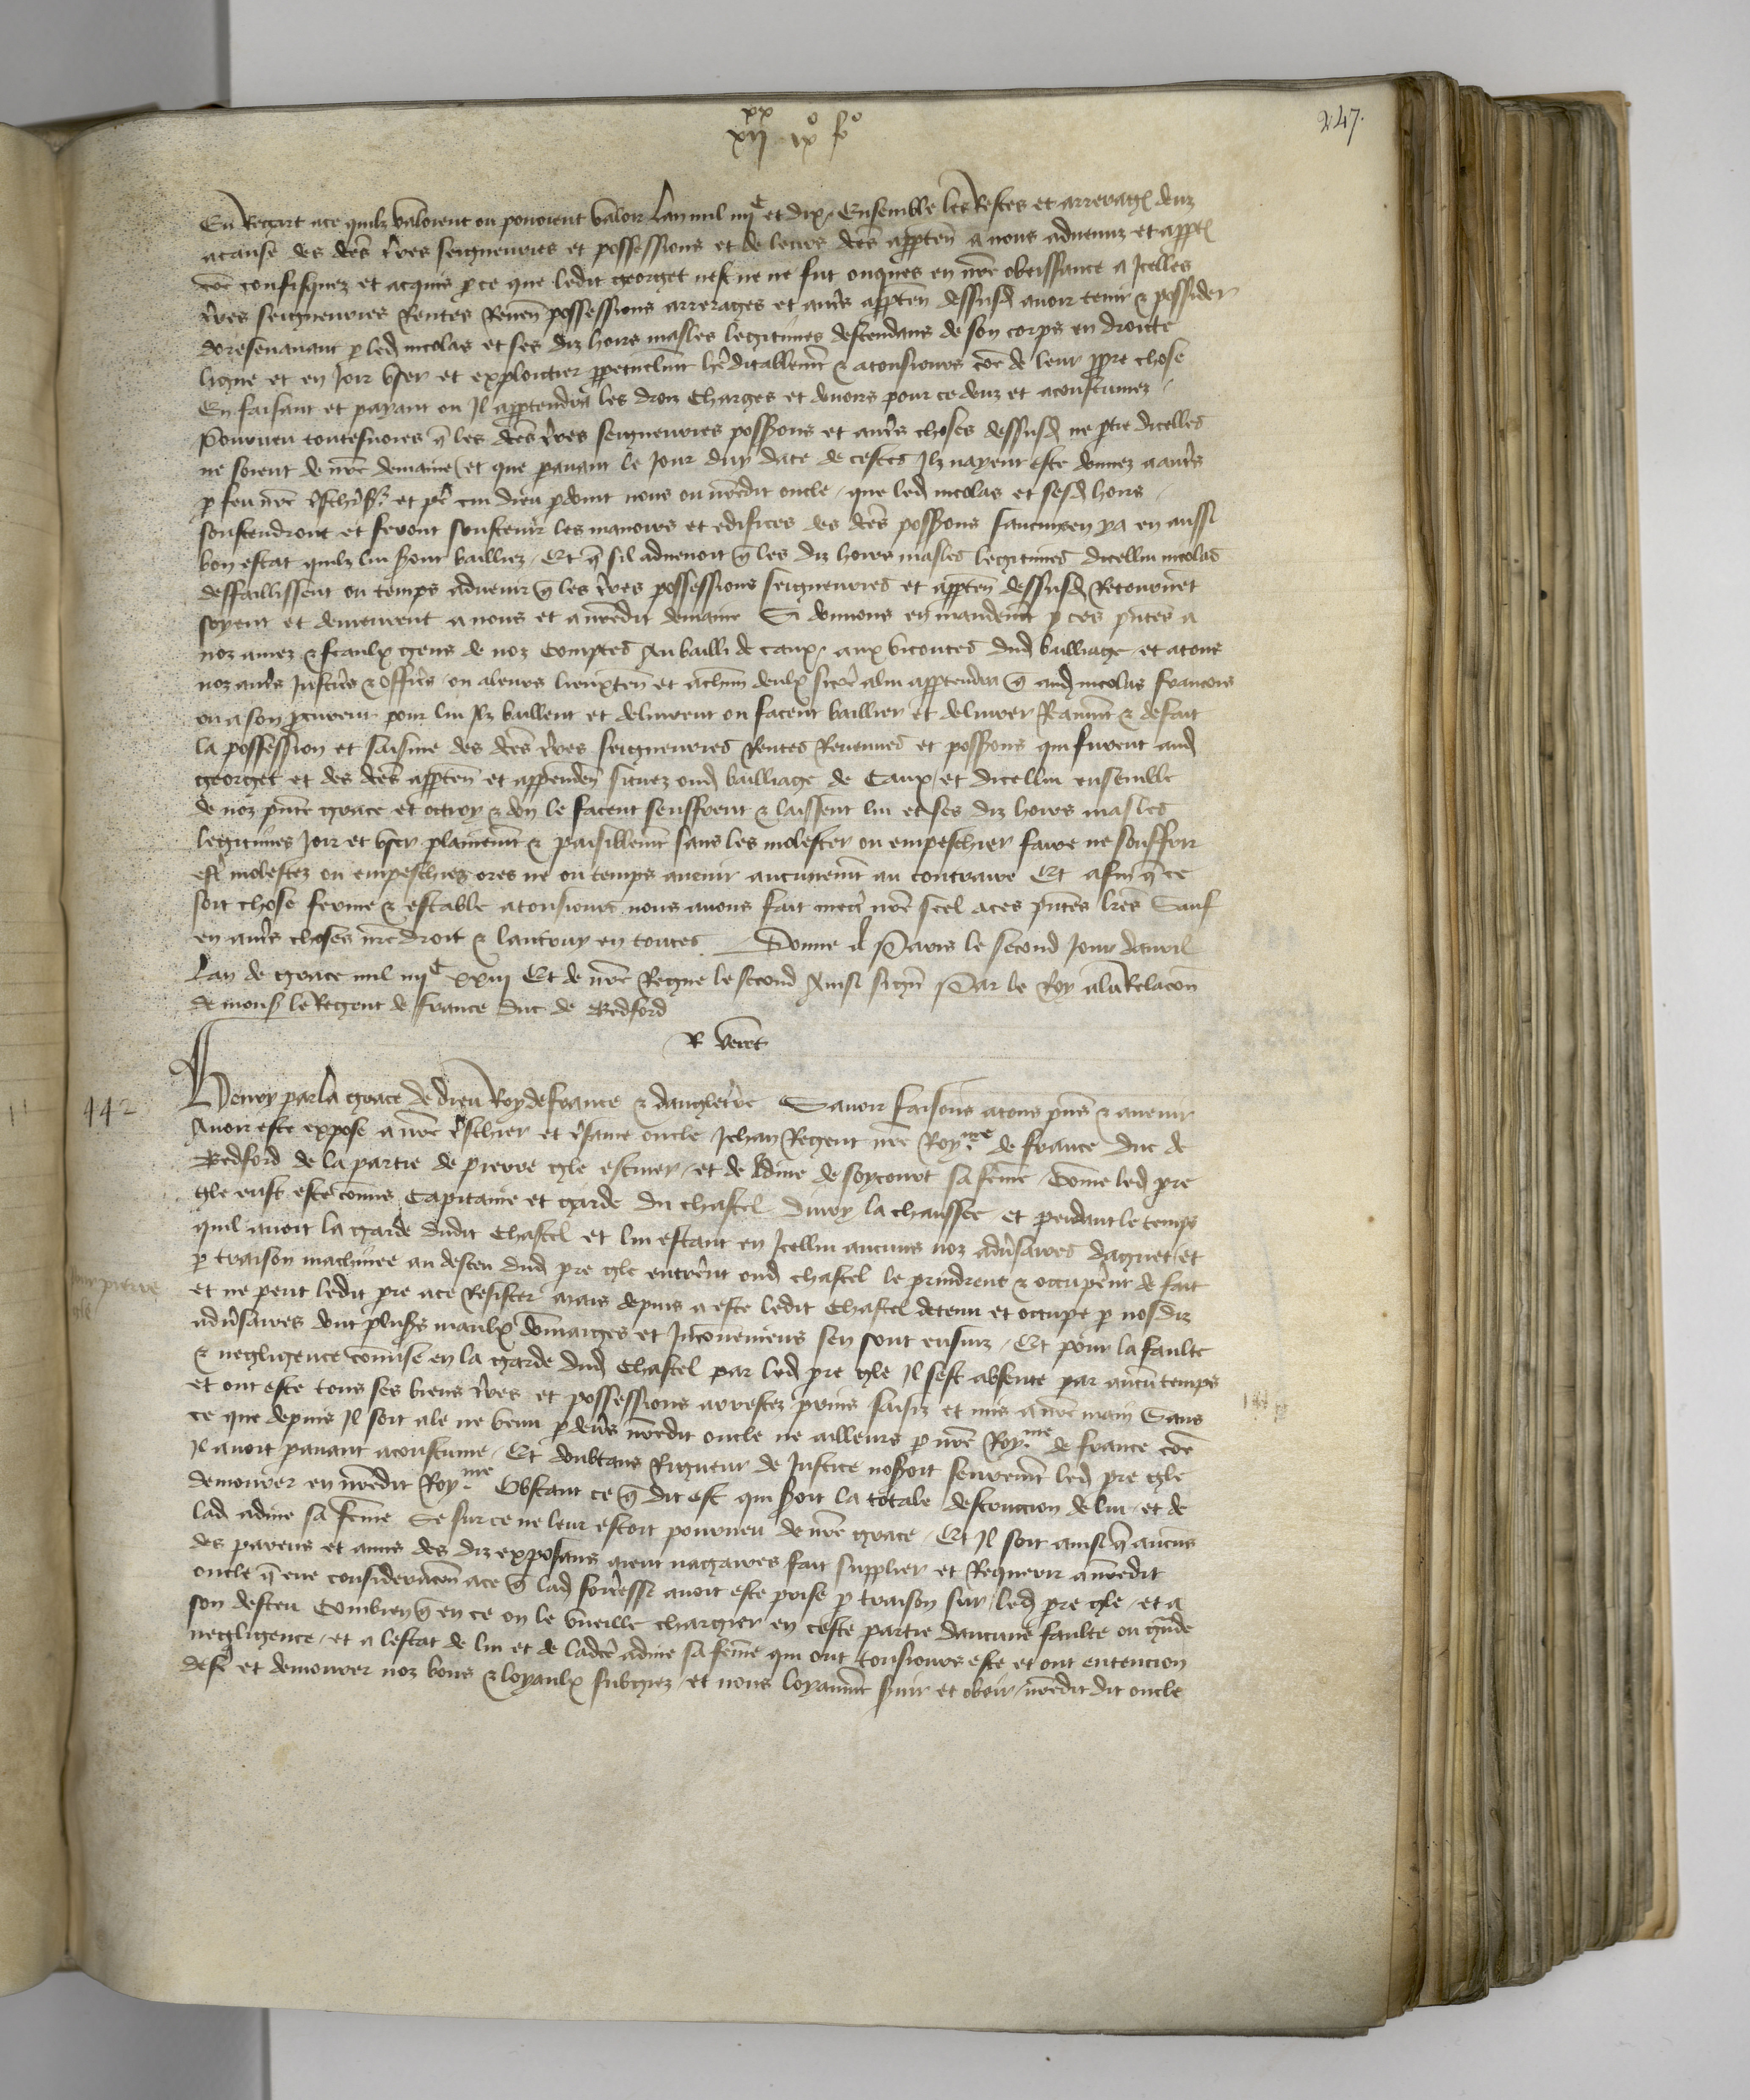 xx
xii ix fo
247.
En Regart ace quilz valoient ou povoient valoir Lan mil iiiiC et dix, Ensemble les Restes et arrerages deuz
acause des dces tres seigneuries et possessions et de leurs dces appten a nous advenuz et
coe confisquez et acquis pce que ledit georget nest ne ne fut onques en nre obeissance a Icelles
tres seigneuries Rentes Reven possessions arrerages et autres appten dessusd avoir tenir & posseder
doresenavant p led nicolas et ses diz hoirs masles legitimes descendans de son corps en droicte
ligne et en Joir user et exploictier ppetuelmt heditablemt & atousiours coe de leur ppre chose
En faisant et paiant ou Il apptendra les droiz Charges et devoirs pour ce deuz et acoustumez
Pourveu toutesvoies q les dces tres seigneuries possions et autres choses dessusd ne ptie dicelles
ne soient de nre demaine et que pavant le Jour duy date de cestes Ilz nayent este donnez a autres
p feu nre et pe cui dieu pdoint nous ou nredit oncle, que led nicolas et sesd hoirs
soustendront et feront soustenir les manoirs et edifices des dces possions saucunsen ya en aussi
bon estat quilz lui seront bailliez, Et q sil advenoit q les diz hoirs masles legitimes dicellui nicolas
deffaillissent ou temps advenir q les tres possessions seigneuries et appten dessusd Retournet
soyent et demeurent a nous et a nredit demaine Si donnons en mandemt p ces pntes a
noz amez & feaulx gens de noz Comptes Au bailli de caux, aux vicontes dud bailliage et atous
noz autres Justiciers & officiers ou aleurs lieuxten et achun deulx sicoe alui apptendra q aud nicolas francois
ou a son pcureur pour lui Ilz baillent et delivrent ou facent baillier et delivrer Raumt & defait
la possession et saisine des dces tres seigneuries Rentes Revenues et possions qui furent aud
georget et des dces appten et appenden situez oud bailliage de Caux, et dicellui ensemble
de noz pnte grace et octroy & don le facent seuffrent & laissent lui et ses diz hoirs masles
legitimes Joir et user plainemt & paisiblemt sans les molester ou empeschier faire ne souffrir
estre molestez ou empeschiez ores ne ou temps avenir aucunemt au contraire Et afin q ce
soit chose ferme & estable atousiours nous avons fait mectre nre seel aces pntes lres Sauf
en autres choses nre droit & lautruy en toutes Donne a Paris le second Jour davril
Lan de grace mil iiiiC xxiii Et de nre Regne le second Ainsi signe Par le Roy ala Relacon
de mons le Regent de france duc de Bedford
R veret
442
Henry par la grace de dieu Roy de france & dangleterre Savoir faisons atous pns & avenir
Avoir este expose a nre treschier et tresame oncle Jehan Regent nre Royme de france duc de
Bedford de la partie de pierre gle escuier, et de Adine de soycourt sa feme, Come led pre
gle eust este comis Capitaine et garde du chastel divry la chaussee et pendant le temps
quil avoit la garde dudit Chastel et lui estant en Icellui aucuns noz adversaires daguet et
p traison machinee au desceu dud pre gle entrerent oud chastel le prindrent & occuperent de fait
pour pierre gle
et ne peut ledit pre ace Resister Mais depuis a este ledit Chastel detenu et occupe p nosdiz
adversaires dont plusrs maulx domaiges et Inconveniens sen sont ensuiz, Et pour la faulte
& negligence comise en la garde dud Chastel par led pre gle Il sest absente par aucun temps
et ont este tous ses biens tres et possessions arrestez prins saisiz et mis a nre main Sans
ce que depuis Il soit ale ne venu p devers nredit oncle ne ailleurs p nre Royme de france coe
Il avoit pavant acoustume, Et doubtans Rigueur de Justice noseroit seuremt led pre gle
demourer en nredit Royme Obstant ce q dit est qui seroit la totale destruccion de lui, et de
lad adine sa feme Se sur ce ne leur estoit pourveu de nre grace, Et Il soit ainsi q aucuns
des parens et amis des diz exposans aient nagaires fait supplier et Requerir a nredit
oncle q eue consideracon ace q lad forteresse avoit este prise p traison sur led pre gle, et a
son desceu Combien q en ce on le vueille chargier en ceste partie daucune faulte ou grnde
negligence, et a lestat de lui et de ladce adine sa feme qui ont tousiours este et ont entencion
destre et demourer noz bons & loyaulx subgiez, et nous loyaumt servir et obeir, nredit dit oncle